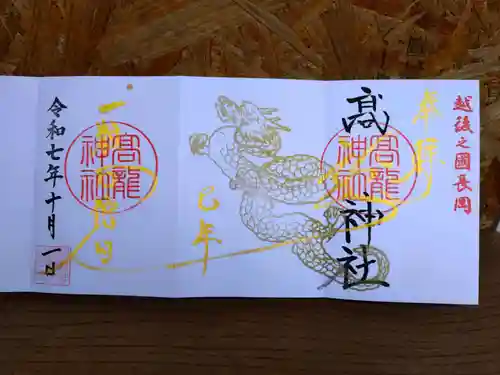 越後之國長岡
奉拝
髙 神社
髙龍
神社
巳年
髙龍
神社
令和七年十月一日